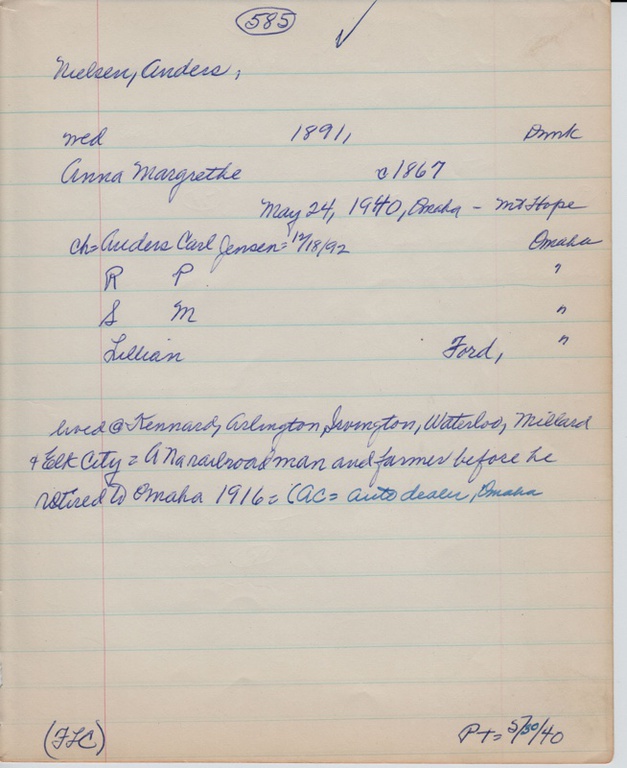 585
Nielsen, Anders,
wed 1891, Dmk
Anna Margrethe c1867
May 24, 1940, Omaha - Mt Hope
ch= Anders Carl Jensen= 12/18/92 Omaha
R P "
S M "
Lillian Ford, "
lived @ Kennard, Arlington, Irvington, Waterloo, Millard
+ Elk City = AN a railroad man and farmer before he
retired to Omaha 1916 = (AC = auto dealer, Omaha
(FLC) PT= 5/30/40